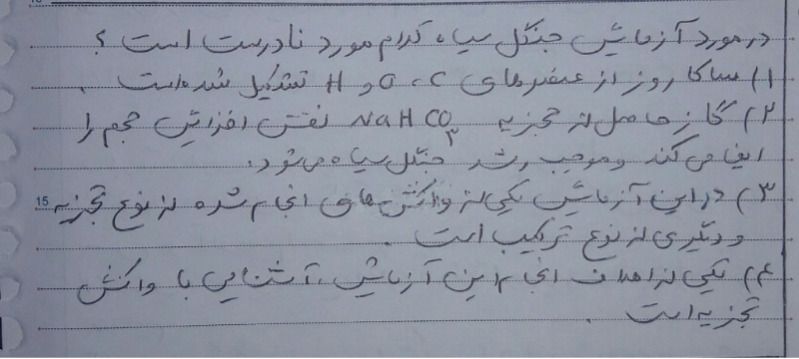 در مورد آزمایش جنگل سیاه کدام مورد نادرست است ؟
۱) ساکاروز از عنصرهای C ، O و H تشکیل شده است .
۲) گاز حاصل از تجزیه NaHCO۳ نقش افزایش حجم را
ایفا می کند و موجب رشد جنگل سیاه می شود.
15 ۳) در این آزمایش یکی از واکنش های انجام شده از نوع تجزیه
و دیگری از نوع ترکیب است .
۴) یکی از اهداف انجام این آزمایش ، آشنایی با واکنش
تجزیه است .